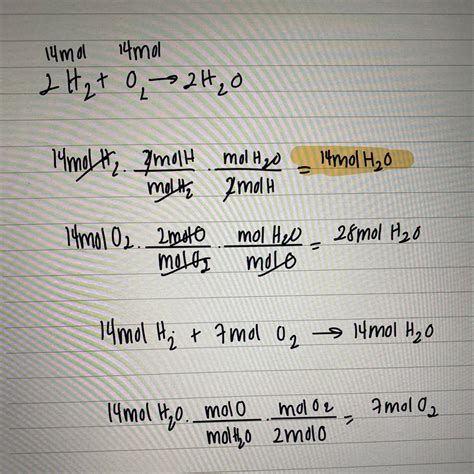 14mol 14mol
2H₂ + O₂ → 2H₂O
14mol H₂ · 2molH/molH₂ · molH₂O/2molH = 14molH₂O
14mol O₂ · 2molO/molO₂ · molH₂O/molO = 28mol H₂O
14mol H₂ + 7mol O₂ → 14mol H₂O
14mol H₂O · molO/molH₂O · molO₂/2molO = 7molO₂